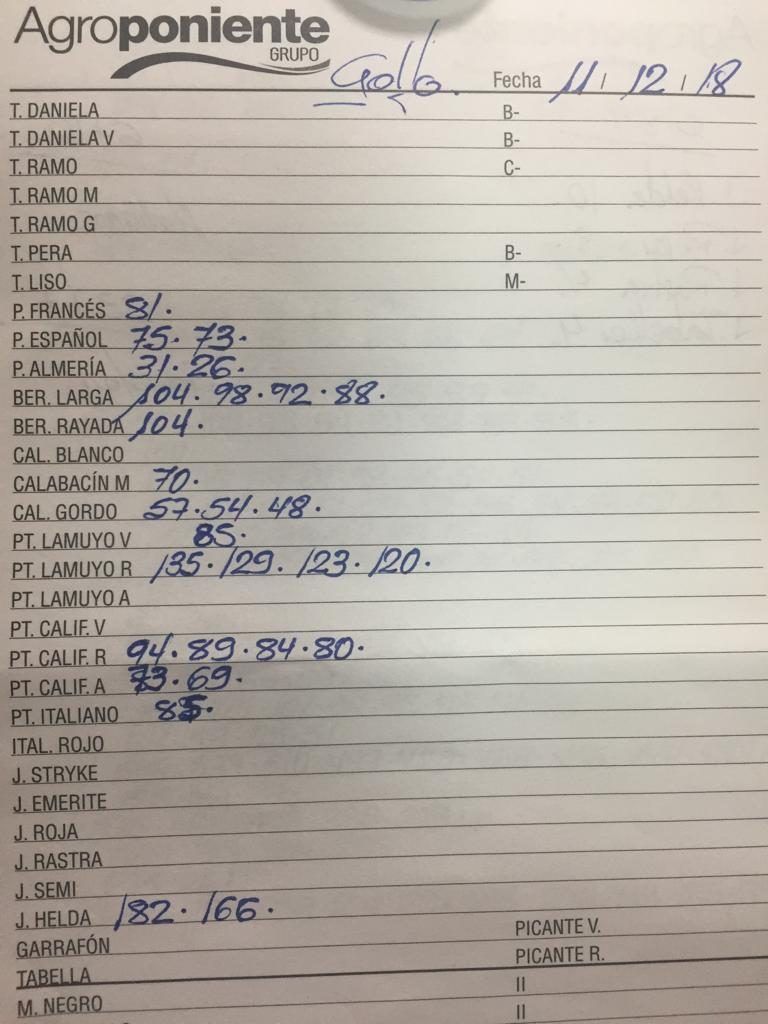 Agroponiente
GRUPO
Gollo. Fecha 11 / 12 / 18
T. DANIELA B-
T. DANIELA V B-
T. RAMO C-
T. RAMO M
T. RAMO G
T. PERA B-
T. LISO M-
P. FRANCÉS 81.
P. ESPAÑOL 75. 73.
P. ALMERÍA 31. 26.
BER. LARGA 104. 98. 92. 88.
BER. RAYADA 104.
CAL. BLANCO
CALABACÍN M 70.
CAL. GORDO 57. 54. 48.
PT. LAMUYO V 85.
PT. LAMUYO R 135. 129. 123. 120.
PT. LAMUYO A
PT. CALIF. V
PT. CALIF. R 94. 89. 84. 80.
PT. CALIF. A 73. 69.
PT. ITALIANO 85.
ITAL. ROJO
J. STRYKE
J. EMERITE
J. ROJA
J. RASTRA
J. SEMI
J. HELDA 182. 166.
GARRAFÓN PICANTE V.
TABELLA PICANTE R.
M. NEGRO II
II